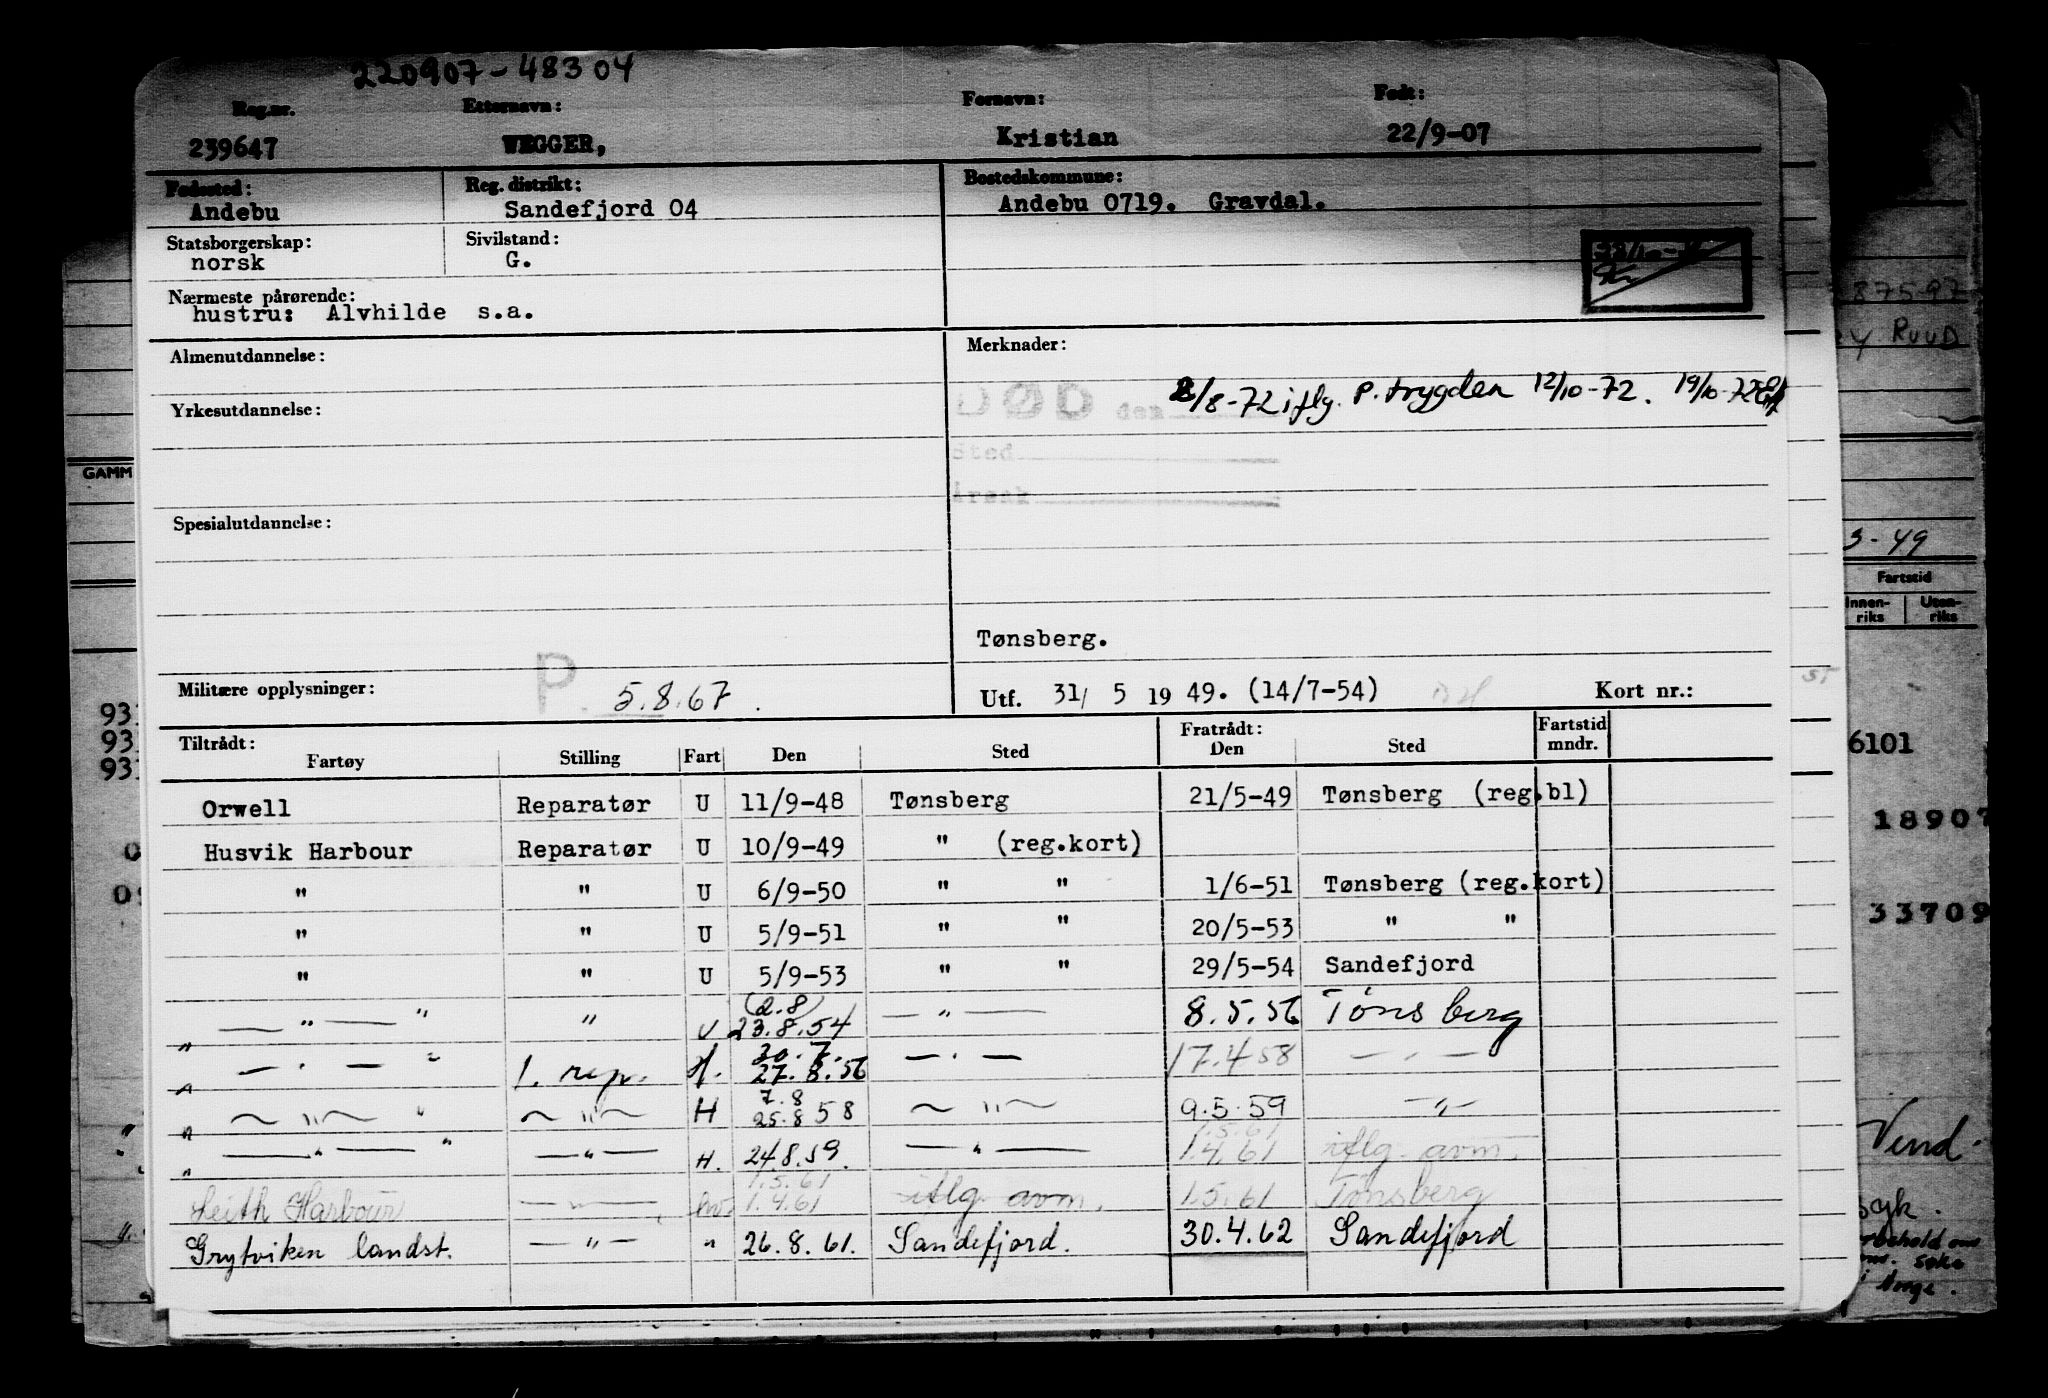 220907-48304
Reg.nr. Etternavn: Fornavn: Født:
239647 WEGGER, Kristian 22/9-07
Fødested: Reg. distrikt: Bostedskommune:
Andebu Sandefjord 04 Andebu 0719. Gravdal.
Statsborgerskap: Sivilstand:
norsk G.
Nærmeste pårørende:
hustru: Alvhilde s.a.
Almenutdannelse: Merknader:
DØD den 2/8-72 iflg. P. trygden 12/10-72. 19/10-72
Yrkesutdannelse:
Sted
Årsak
Spesialutdannelse:
Tønsberg.
Militære opplysninger: P. 5.8.67. Utf. 31/ 5 19 49. (14/7-54) Kort nr.:
Tiltrådt: Fratrådt: Fartstid
Fartøy Stilling Fart Den Sted Den Sted mndr.
Orwell Reparatør U 11/9-48 Tønsberg 21/5-49 Tønsberg (reg.bl)
Husvik Harbour Reparatør U 10/9-49 " (reg.kort)
" " U 6/9-50 " " 1/6-51 Tønsberg (reg.kort)
" " U 5/9-51 " " 20/5-53 " "
" " U 5/9-53 " " 29/5-54 Sandefjord
(2.8)
" — " — " " U 23.8.54 — " — 8.5.56 Tønsberg
30.7.
" — " — " 1. rep. H. 27.8.56 — " — 17.4.58 — " —
7.8
" — " — " — " — H 25.8 58 — " — 9.5.59 — " —
1.5.61
" — " — " — " — H. 24.8.59. — " — 1.4.61 iflg. avm.
1.5.61
Leith Harbour — " — hv. 1.4.61 iflg. avm. 1.5.61 Tønsberg
Grytviken landst. — " — " 26.8.61. Sandefjord. 30.4.62 Sandefjord
GAMM
93
93
93
87597
RUUD
3-49
Fartstid
Innen-riks Uten-riks
6101
18907
33709
Vend.